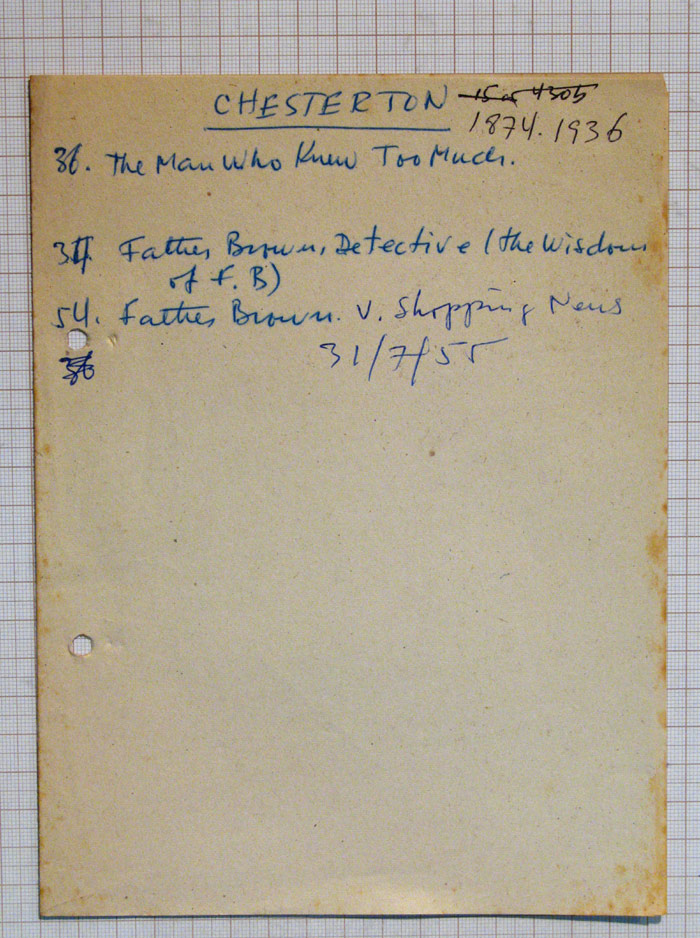 CHESTERTON
1874.1936
36. The Man Who Knew Too Much.
Father Brown, Detective (the Wisdom
of F. B)
54. Father Brown. V. Shopping News
31/7/55
36